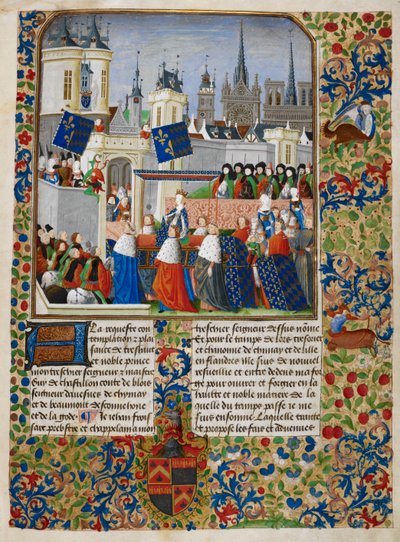 A la requeste con
templation et plai
sance de treshault
et noble prince
mon treschier seigneur et maistre
Guy de chastillon conte de blois
seigneur davesnes de chymay
et de beaumont de sconnehove
et de la gode. Je Jehan frois
sart prebstre et chappelain a mon
treschier seigneur dessus nomme
Et pour le temps de lors tresorier
et chanoine de chymay et de lille
en flandres me suis de nouvel
resveillie et entre dedens ma for
ge pour ouvrer et forgier en la
haulte et noble matiere de la
quelle du temps passe je me
suis ensonnie. Laquelle traitte
et propose les fais et advenues